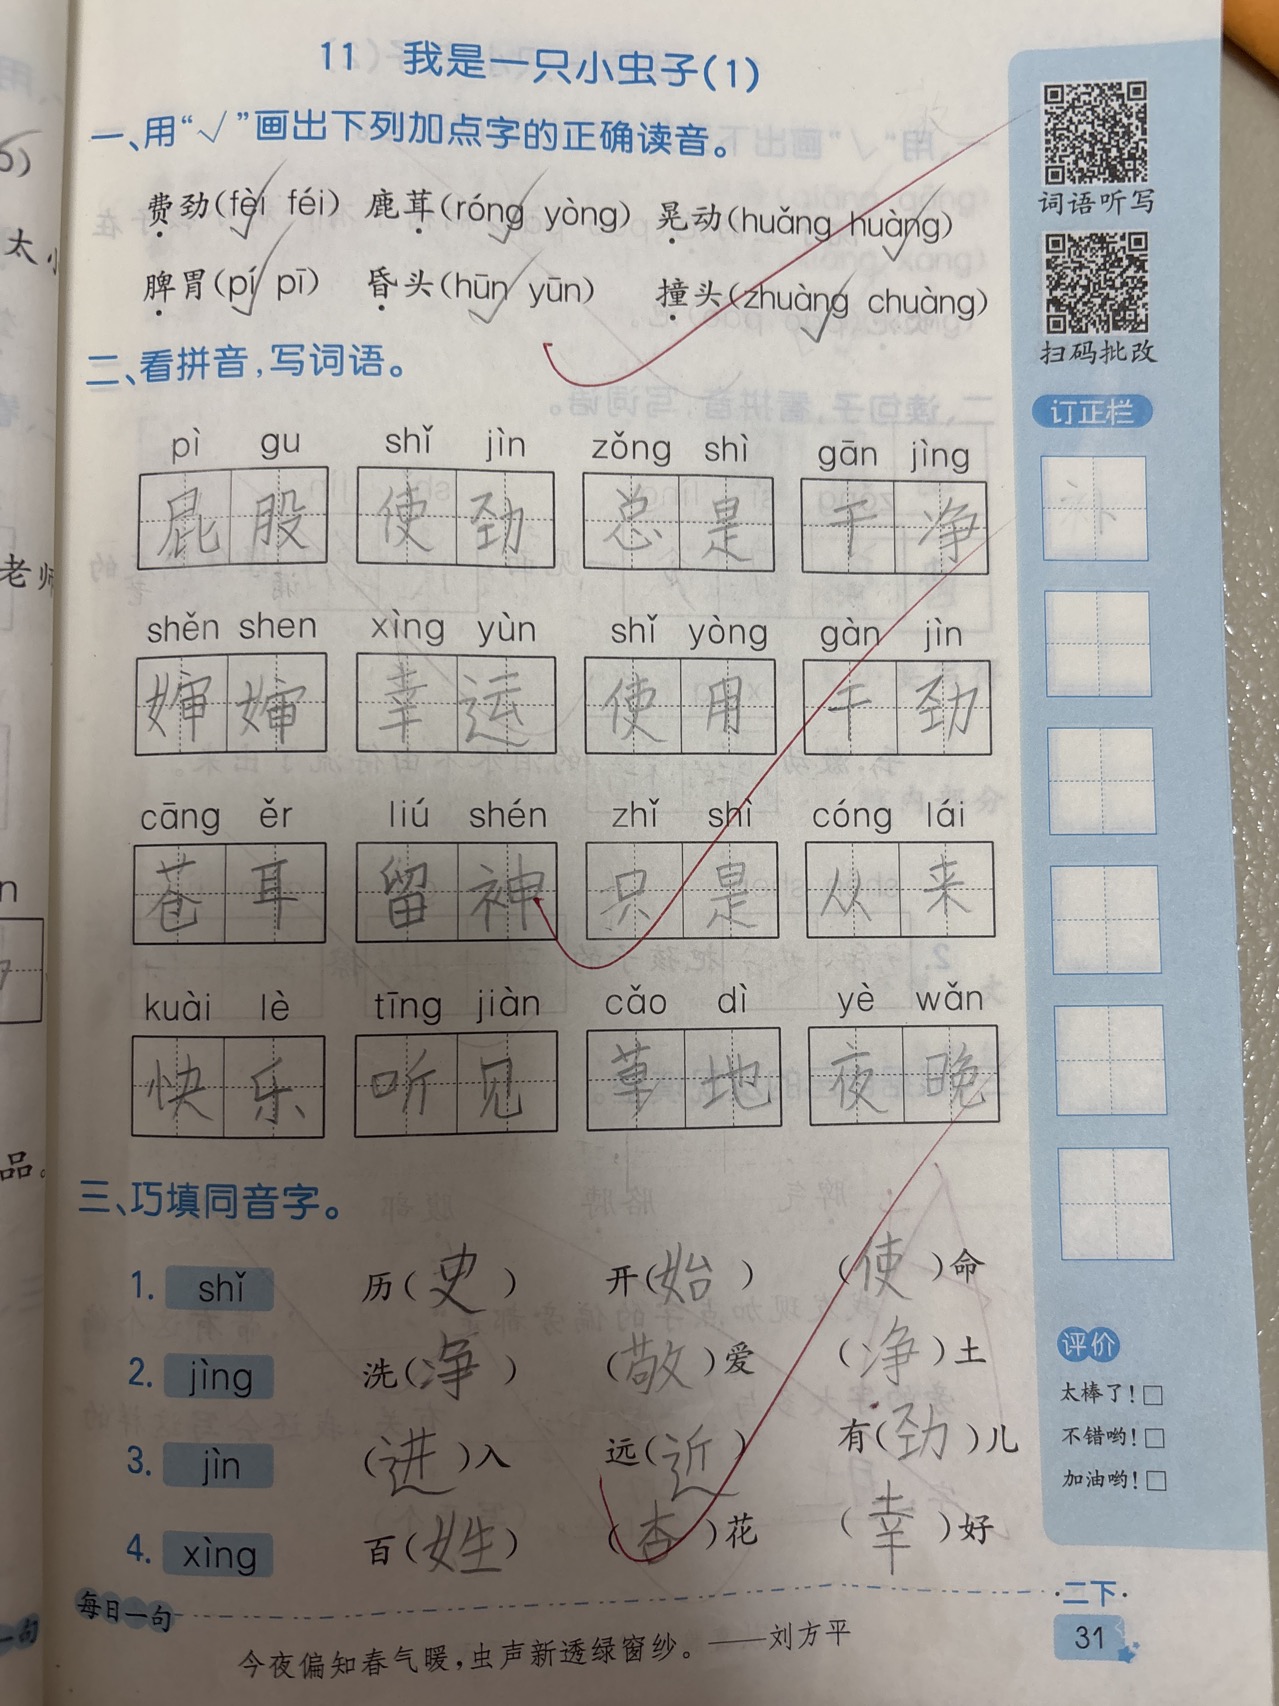 11 我是一只小虫子(1)
一、用“√”画出下列加点字的正确读音。
费劲(fèi féi) 鹿茸(róng yòng) 晃动(huǎng huàng)
脾胃(pí pī) 昏头(hūn yūn) 撞头(zhuàng chuàng)
二、看拼音,写词语。
pì gu shǐ jìn zǒng shì gān jìng
屁股 使劲 总是 干净
shěn shen xìng yùn shǐ yòng gàn jìn
婶婶 幸运 使用 干劲
cāng ěr liú shén zhǐ shì cóng lái
苍耳 留神 只是 从来
kuài lè tīng jiàn cǎo dì yè wǎn
快乐 听见 草地 夜晚
三、巧填同音字。
1. shǐ 历(史) 开(始) (使)命
2. jìng 洗(净) (敬)爱 (净)土
3. jìn (进)入 远(近) 有(劲)儿
4. xìng 百(姓) (杏)花 (幸)好
每日一句
今夜偏知春气暖,虫声新透绿窗纱。——刘方平
·二下·
31
词语听写
扫码批改
订正栏
评价
太棒了!□
不错哟!□
加油哟!□
太
老师
品。
一句